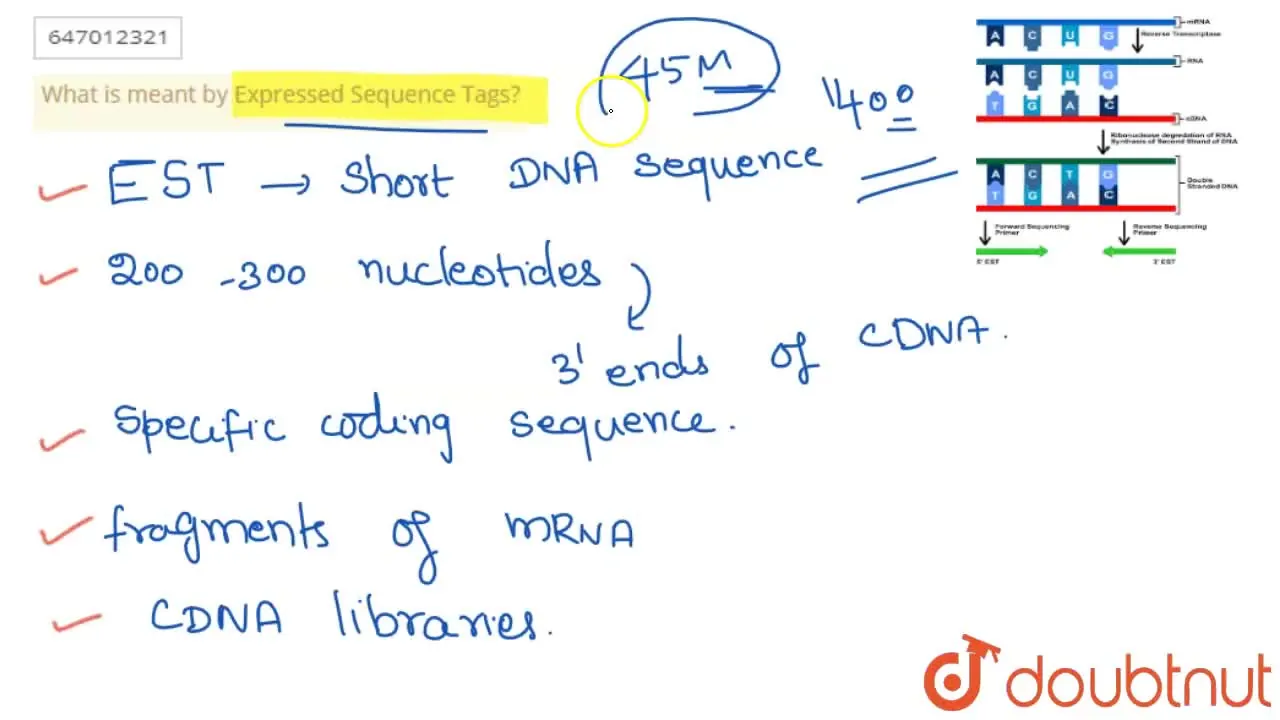 647012321
What is meant by Expressed Sequence Tags?
45M
1400
EST → Short DNA sequence
200 -300 nucleotides
3' ends of CDNA.
Specific coding sequence.
fragments of mRNA
CDNA libraries.
mRNA
Reverse Transcriptase
A C U G
RNA
A C U G
T G A C
cDNA
Ribonuclease degradation of RNA
Synthesis of Second Strand of DNA
A C T G
T G A C
Double
Stranded DNA
Forward Sequencing
Primer
Reverse Sequencing
Primer
5' EST
3' EST
doubtnut